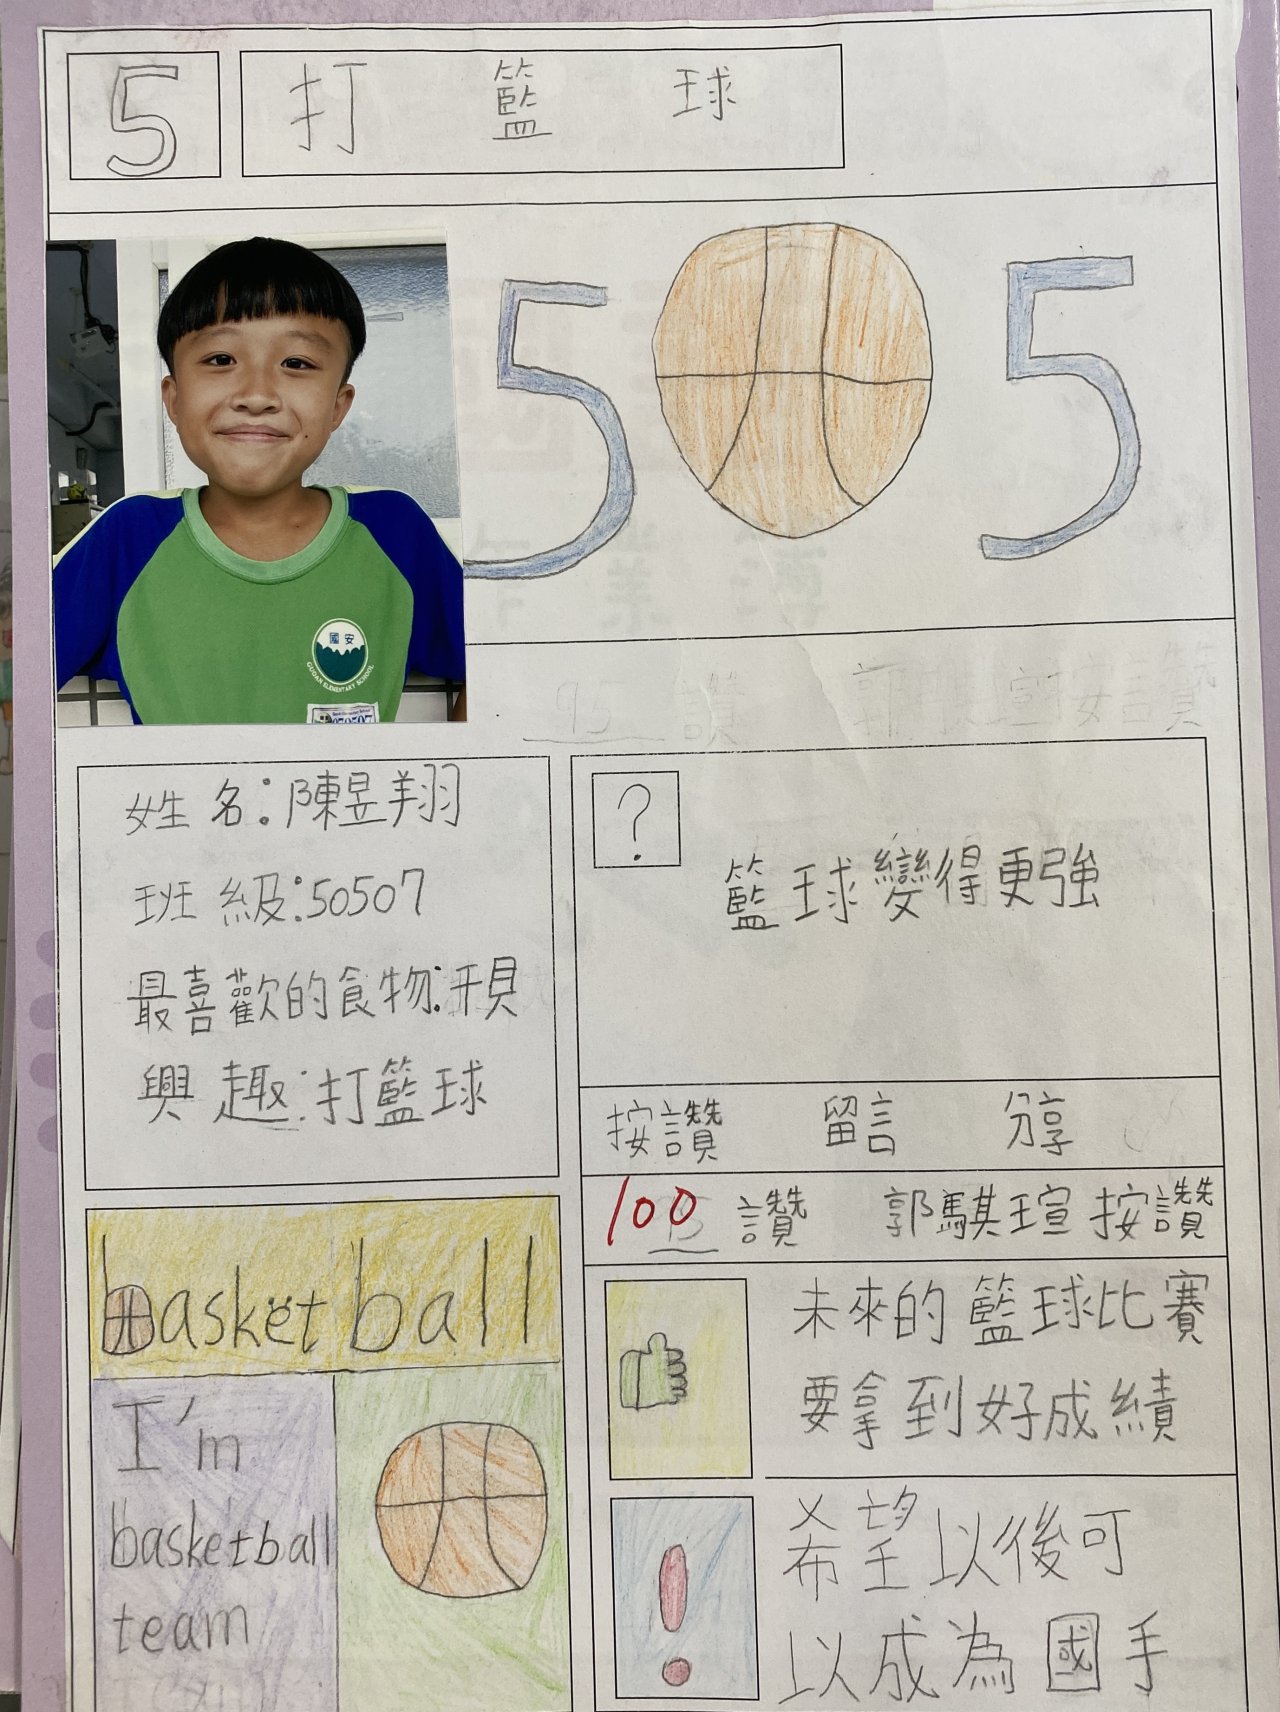 5
打 籃 球
5 5
國安
GUOAN ELEMENTARY SCHOOL
姓名:陳昱翔
班級:50507
最喜歡的食物:
興趣:打籃球
?
籃球變得更強
按讚 留言 分享
100 讚 郭騏瑄按讚
basketball
I'm
basketball
team
未來的籃球比賽
要拿到好成績
!
希望以後可
以成為國手